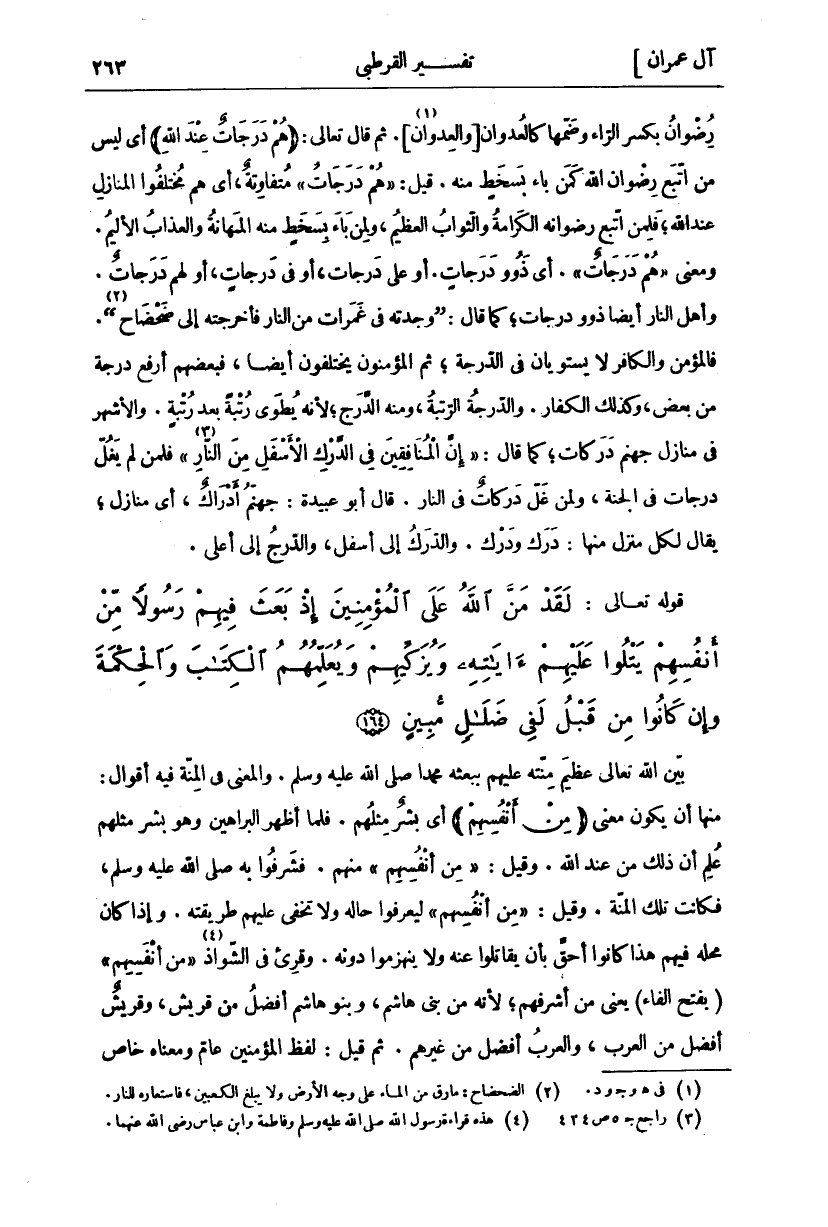 آل عمران ] تفســـير القرطبي ٢٦٣
رُضْوانُ بكسر الرّاء وضَمّها كالعُدوان [والعِدوان](١) . ثم قال تعالى : ﴿ هُمْ دَرَجَاتٌ عِنْدَ اللهِ ﴾ أى ليس
من اتّبع رِضْوان الله كَمَن باء بسَخَطٍ منه . قيل : «هُمْ دَرَجَاتٌ» مُتفاوِتةٌ ، أى هم مُختلِفُوا المنازلِ
عندالله ؛ فلِمن اتّبع رضوانه الكَرامةُ والثّوابُ العظيمُ ، ولِمن بَاءَ بِسَخَطٍ منه المَهانةُ والعذابُ الأليمُ .
ومعنى «هُمْ دَرَجَاتٌ» . أى ذَوُو دَرَجاتٍ . أو على دَرجات ، أو فى دَرجاتٍ ، أو لهم دَرَجاتٌ .
وأهل النار أيضا ذوو درجات ؛ كما قال : ”وجدته فى غَمَرات من النار فأخرجته إلى ضَحْضَاح(٢)“ .
فالمؤمن والكافر لا يستويان فى الدّرجة ؛ ثم المؤمنون يختلفون أيضـا ، فبعضهم أرفع درجة
من بعض ، وكذلك الكفار . والدّرجةُ الرّتبةُ ، ومنه الدَّرَج ؛ لأنه يُطْوى رُتْبةً بعد رُتْبةٍ . والأشهر
فى منازل جهنم دَرَكات ؛ كما قال : « إِنَّ الْمُنَافِقِينَ فِى الدَّرْكِ الْأَسْفَلِ مِنَ النَّارِ(٣) » فلمن لم يَغُلّ
درجات فى الجنة ، ولمن غَلّ دَركاتٌ فى النار . قال أبو عبيدة : جهنّم أَدْرَاكٌ ، أى منازل ؛
يقال لكل منزل منها : دَرَك ودَرْك . والدّرَكُ إلى أسفل ، والدّرجُ إلى أعلى .
قوله تعـالى : لَقَدْ مَنَّ ٱللَّهُ عَلَى ٱلْمُؤْمِنِينَ إِذْ بَعَثَ فِيهِمْ رَسُولًا مِّنْ
أَنفُسِهِمْ يَتْلُوا عَلَيْهِمْ ءَايَٰتِهِۦ وَيُزَكِّيهِمْ وَيُعَلِّمُهُمُ ٱلْكِتَٰبَ وَٱلْحِكْمَةَ
وَإِن كَانُوا مِن قَبْلُ لَفِى ضَلَٰلٍ مُّبِينٍ ١٦٤
بيّن الله تعالى عظيمَ مِنّته عليهم ببعثه محمدا صلى الله عليه وسلم . والمعنى فى المِنّة فيه أقوال :
منها أن يكون معنى ﴿ مِنْ أَنْفُسِهِمْ ﴾ أى بشرٌ مِثلُهم . فلما أظهر البراهين وهو بشر مثلهم
عُلِم أن ذلك من عند الله . وقيل : « مِن أنْفُسِهِم » منهم . فشَرفُوا به صلى الله عليه وسلم ،
فكانت تلك المنّة . وقيل : «مِن أنْفُسِهم» ليعرفوا حاله ولا تخفى عليهم طريقته . وإذا كان
محله فيهم هذا كانوا أحقَّ بأن يقاتلوا عنه ولا ينهزموا دونه . وقرِئ فى الشّواذ(٤) «من أنْفَسِهِم»
( بفتح الفاء) يعنى من أشرفهم ؛ لأنه من بنى هاشم ، وبنو هاشم أفضلُ من قريش ، وقريشٌ
أفضل من العرب ، والعربُ أفضل من غيرهم . ثم قيل : لفظ المؤمنين عامّ ومعناه خاص
(١) فى هـ وجـ ود . (٢) الضحضاح : مارق من المـاء على وجه الأرض ولا يبلغ الكعبين ، فاستعاره للنار .
(٣) راجع جـ ٥ ص ٤٢٤ (٤) هذه قراءة رسول الله صلى الله عليه وسلم وفاطمة وابن عباس رضى الله عنهما .